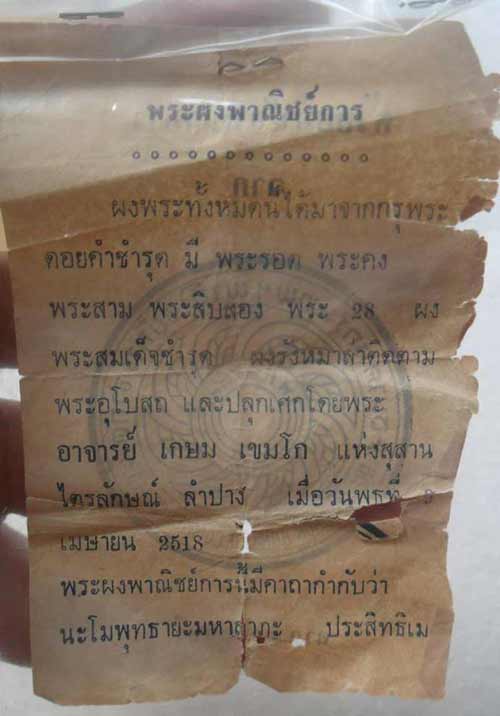 พระผงพาณิชย์การ
ผงพระทั้งหมดนี้ได้มาจากกรุพระ
ดอยคำชำรุด มี พระรอด พระคง
พระสาม พระสิบสอง พระ 28 ผง
พระสมเด็จชำรุด ผงรังหมาล่าติดตาม
พระอุโบสถ และปลุกเศกโดยพระ
อาจารย์ เกษม เขมโก แห่งสุสาน
ไตรลักษณ์ ลำปาง เมื่อวันพุธที่ 9
เมษายน 2518
พระผงพาณิชย์การนี้มีคาถากำกับว่า
นะโมพุทธายะมหาลาภะ ประสิทธิเม